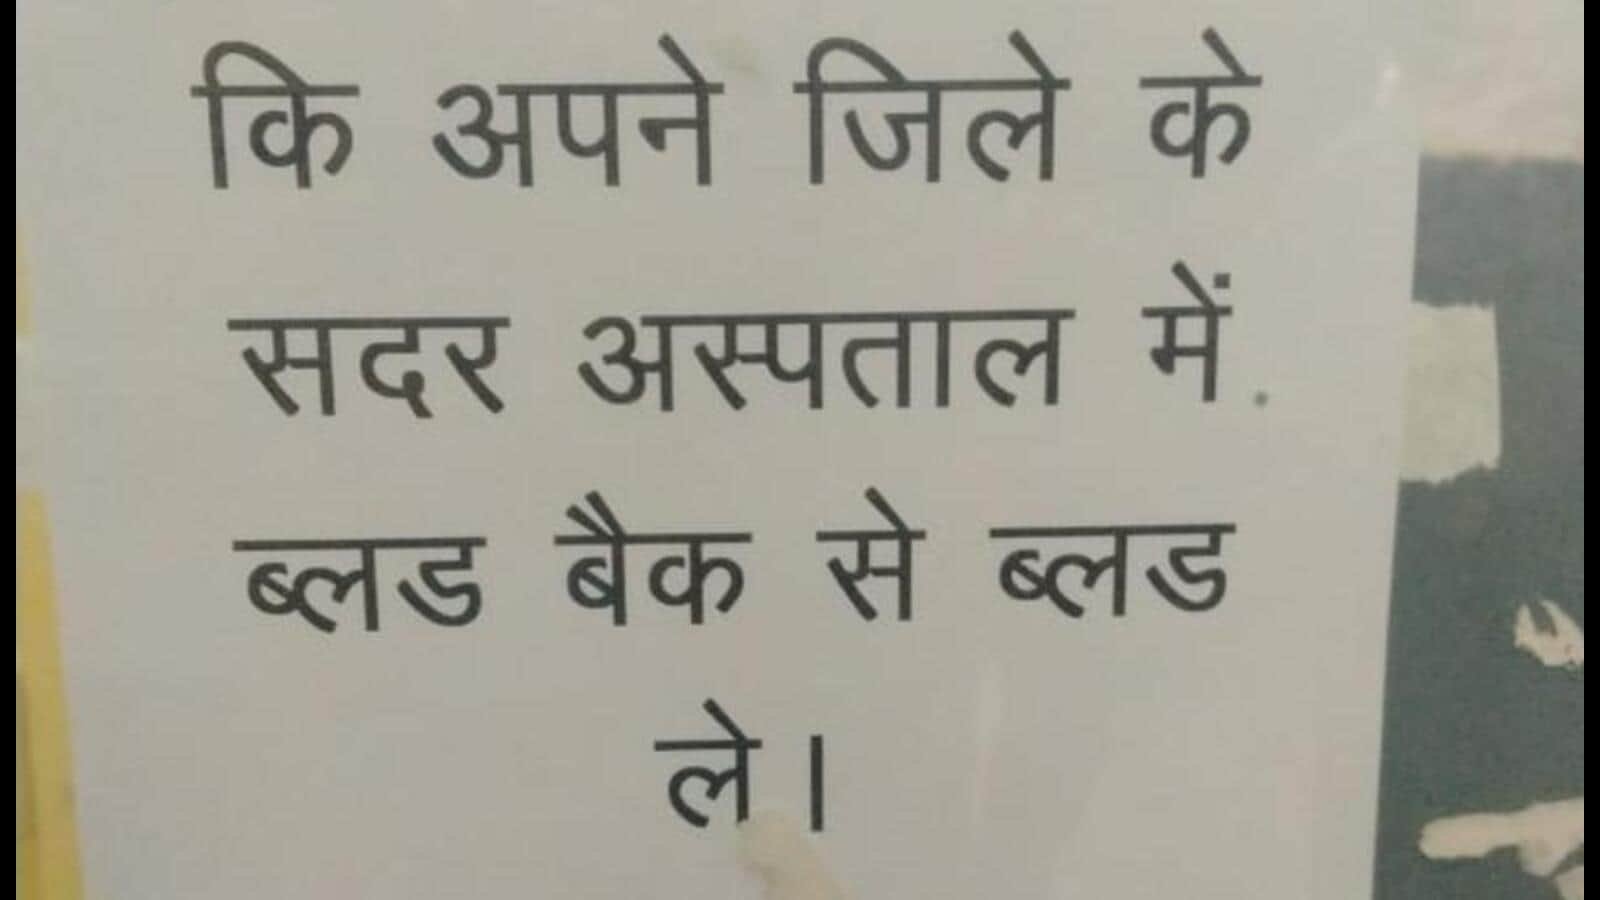 कि अपने जिले के
सदर अस्पताल में
ब्लड बैक से ब्लड
ले।